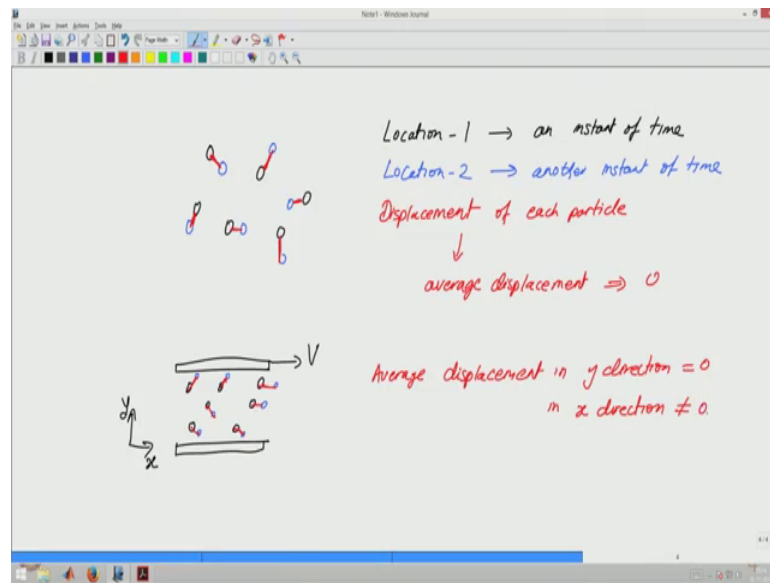 Note1 - Windows Journal
File Edit View Insert Actions Tools Help
Page Width
B I
Location - 1 → an instant of time
Location - 2 → another instant of time
Displacement of each particle
↓
average displacement ⇒ 0
V
y
x
Average displacement in y direction = 0
in x direction ≠ 0.
4/4
4